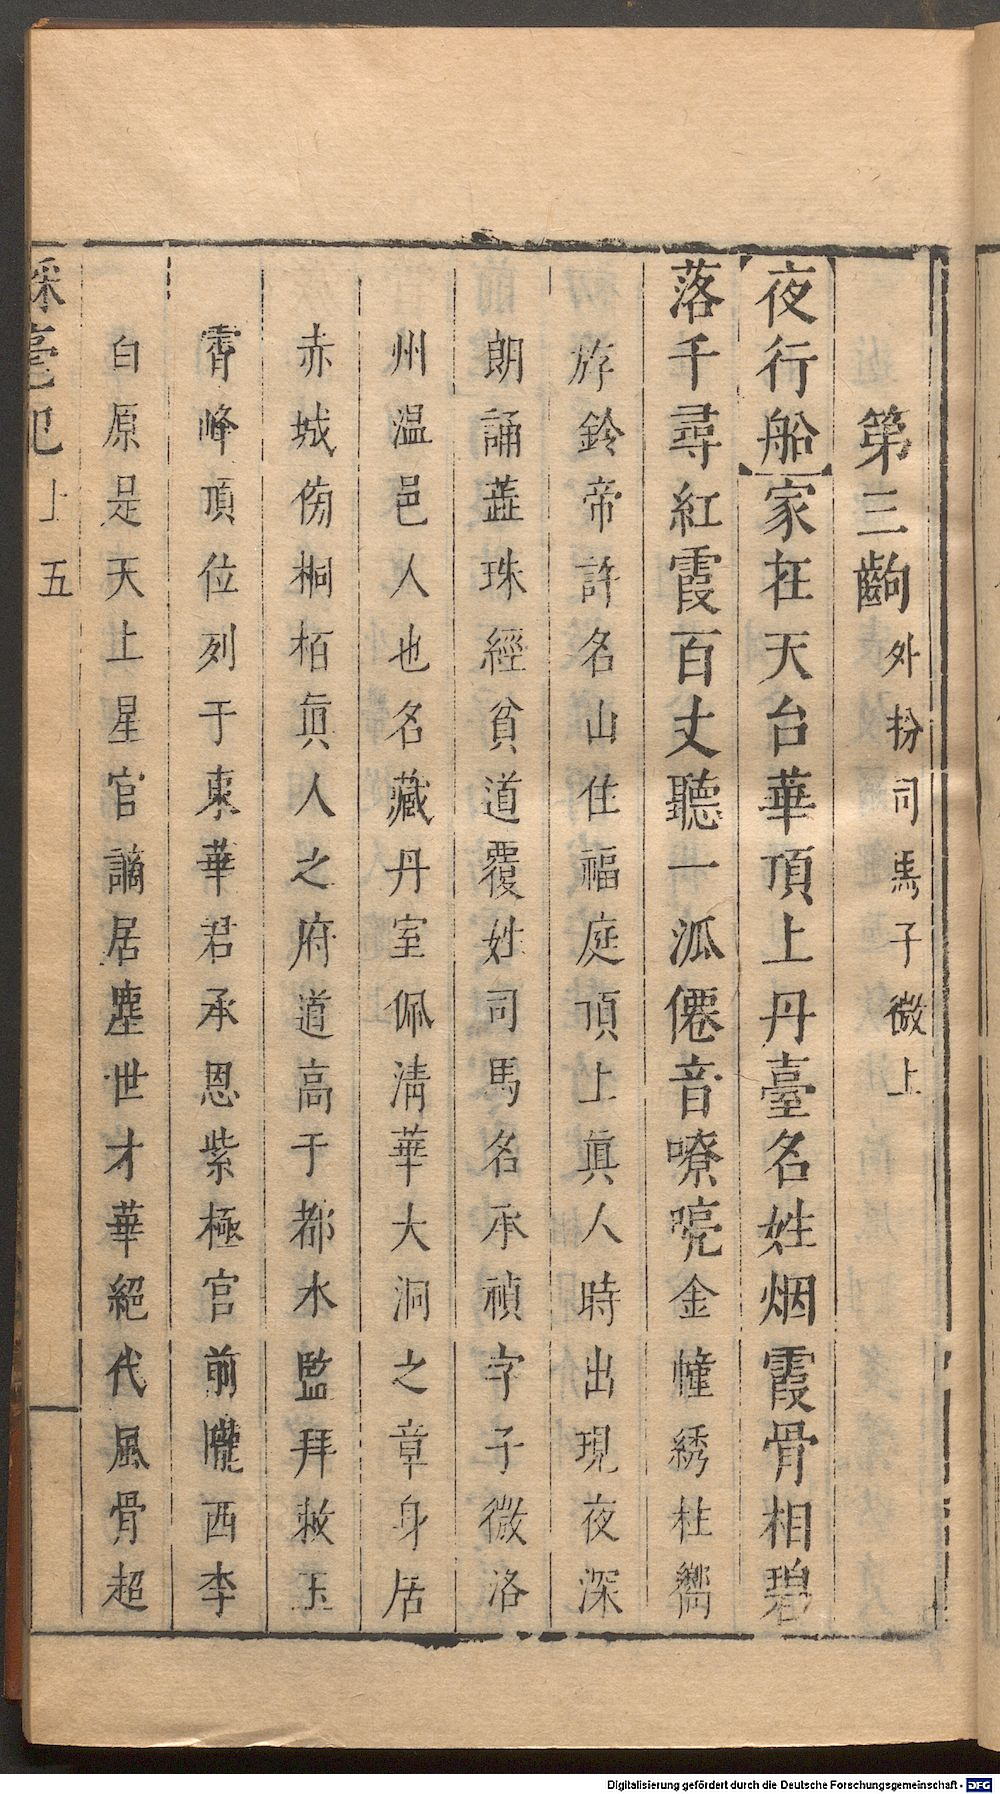 第三齣外扮司馬子微上
夜行船家在天台華頂上丹臺名姓烟霞骨相碧
落千尋紅霞百丈聽一派僊音嘹喨金幢綉柱嚮
斿鈴帝許名山住福庭頂上眞人時出現夜深
朗誦蕋珠經貧道覆姓司馬名承禎字子微洛
州温邑人也名藏丹室佩淸華大洞之章身居
赤城侚桐栢眞人之府道高于都水監拜敕玉
霄峰頂位列于東華君承恩紫極宮前隴西李
白原是天上星官謫居塵世才華絕代風骨超
綵毫犯 上 五
Digitalisierung gefördert durch die Deutsche Forschungsgemeinschaft - DFG